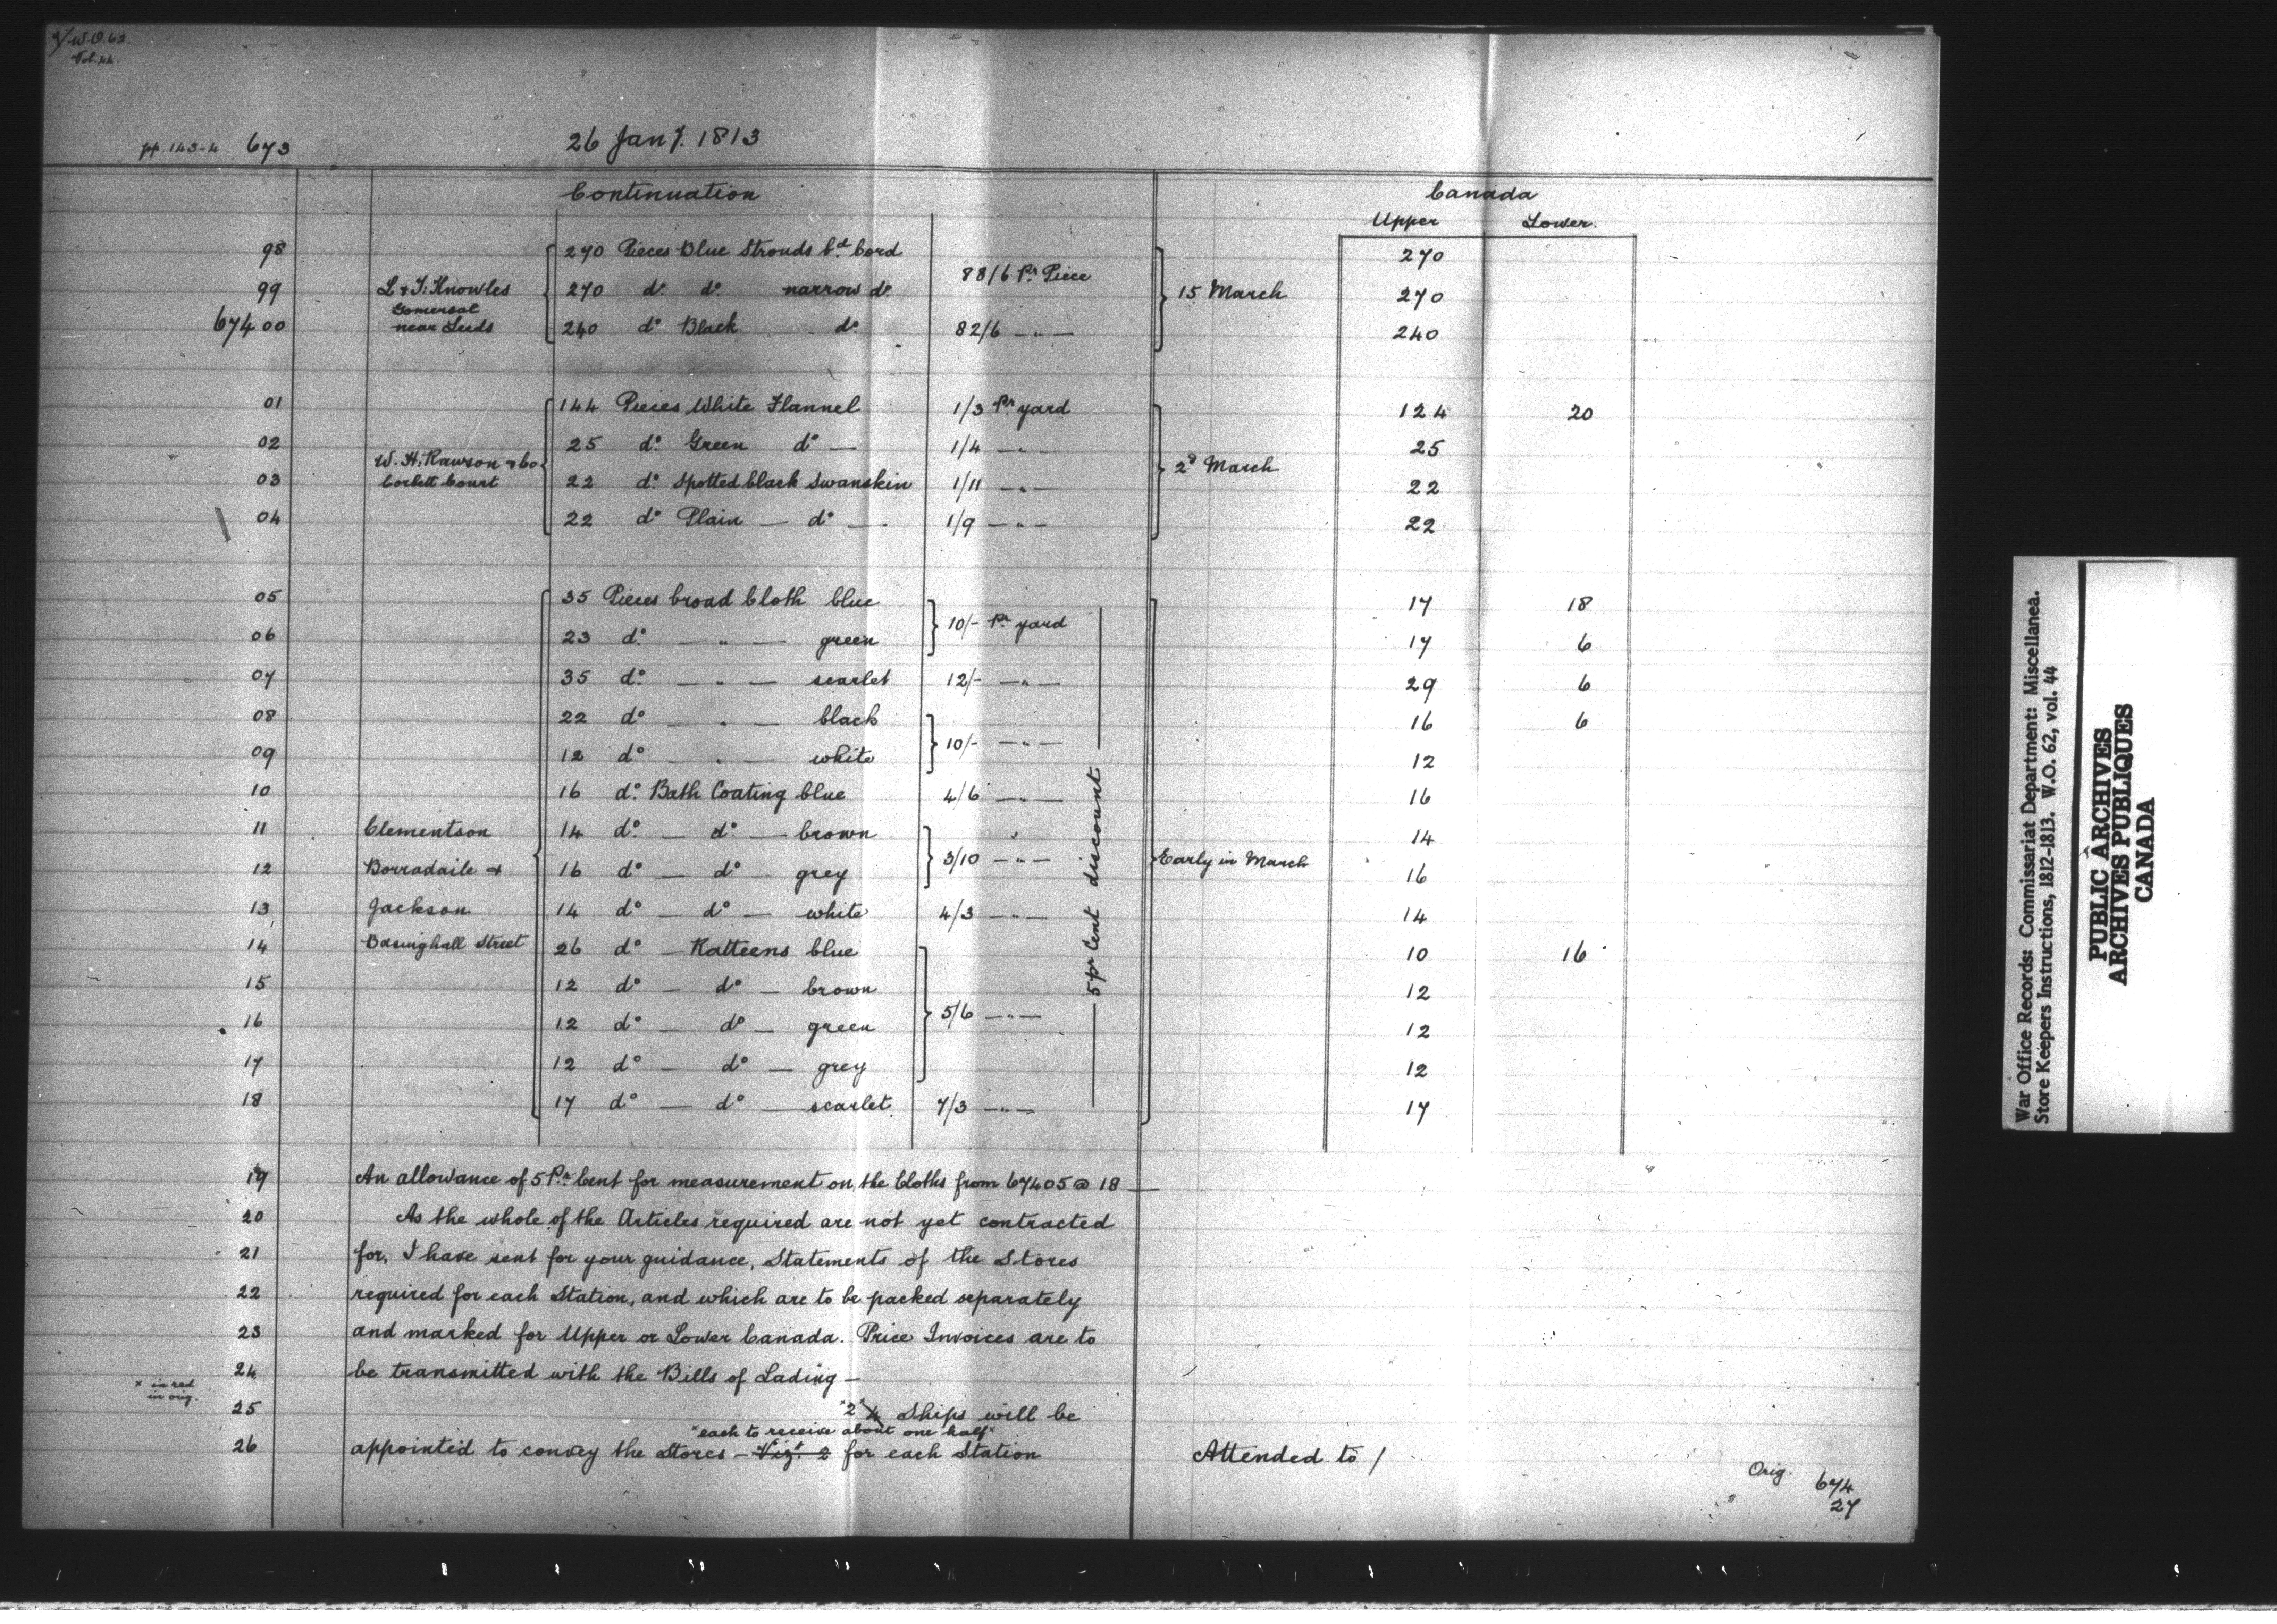 W.O. 62.
Vol. 44.
pp. 143-4 673 26 Jany. 1813
Continuation Canada
Upper Lower.
98 270 Pieces Blue Strouds bd. Cord 270
88/6 Pr. Piece
99 L & J. Knowles 270 do. do. narrow do. 15 March 270
Gomersal
67400 near Leeds 240 do Black do. 82/6 — " — 240
01 144 Pieces White Flannel 1/3 Pr. yard 124 20
02 25 do. Green do — 1/4 — " — 25
W. H. Rawson & Co 2d March
03 Corbett Court 22 do. Spotted black Swanskin 1/11 — " — 22
04 22 do Plain — do — 1/9 — " — 22
05 35 Pieces broad Cloth blue 17 18
10/- Pr. yard
06 23 do. — " — green 17 6
07 35 do. — " — scarlet 12/- — " — 29 6
08 22 do — " — black 16 6
10/- — " —
09 12 do — " — white 12
10 16 do. Bath Coating blue 4/6 — " — 16
11 Clementson 14 do. — do — brown " 14
3/10 — " — Early in March
12 Borradaile & 16 do — do — grey 16
13 Jackson 14 do — do — white 4/3 — " — 14
14 Basinghall Street 26 do — Ratteens blue 10 16
15 12 do — do — brown 12
5/6 — " —
16 12 do — do — green 12
17 12 do — do — grey 12
18 17 do — do — scarlet. 7/3 — " — 17
— 5 pr Cent discount —
19 An allowance of 5 Pr. Cent for measurement on the Cloths from 67405 @ 18 —
20 As the whole of the Articles required are not yet contracted
21 for, I have sent for your guidance, Statements of the Stores
22 required for each Station, and which are to be packed separately
23 and marked for Upper or Lower Canada. Price Invoices are to
24 be transmitted with the Bills of Lading —
x in red
in orig.
25 "2" 4 Ships will be
"each to receive about one half"
26 appointed to convey the Stores — Vizt. 2 for each Station Attended to /
Orig. 674
27
War Office Records: Commissariat Department: Miscellanea.
Store Keepers Instructions, 1812-1813. W.O. 62, vol. 44
PUBLIC ARCHIVES
ARCHIVES PUBLIQUES
CANADA